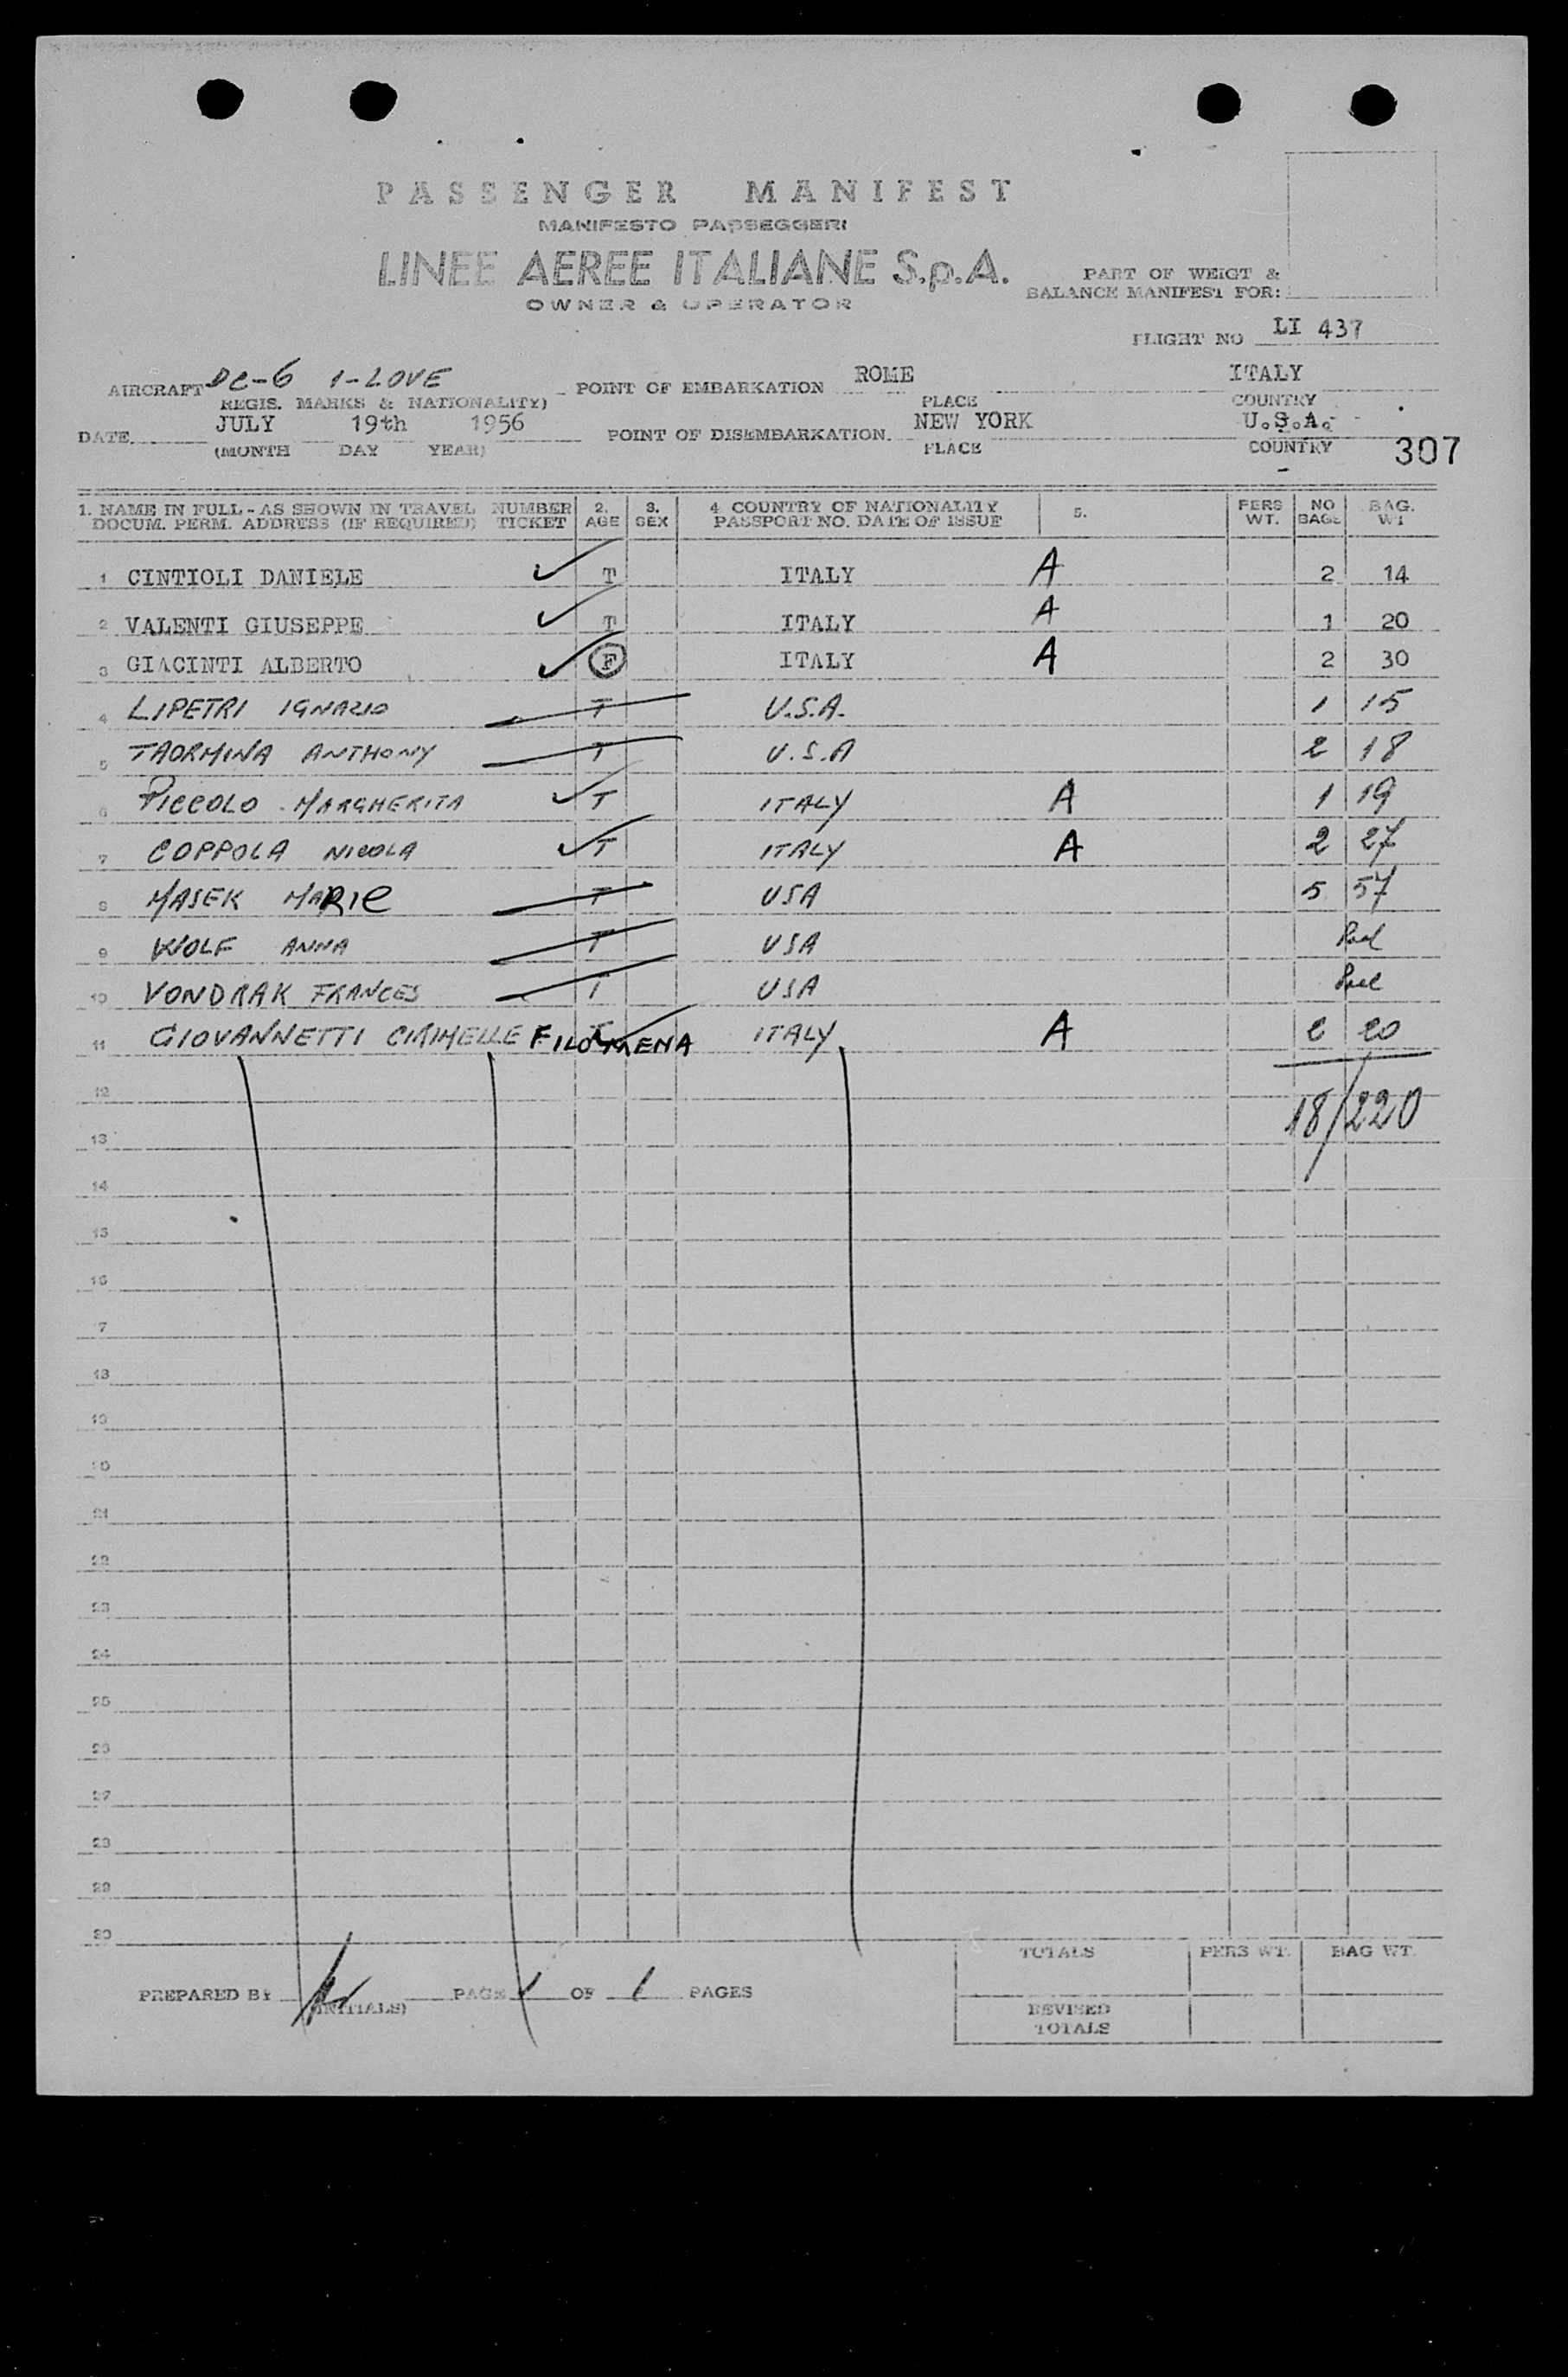 PASSENGER MANIFEST
MANIFESTO PASSEGGERI
LINEE AEREE ITALIANE S.p.A.
OWNER & OPERATOR
PART OF WEIGT &
BALANCE MANIFEST FOR:
FLIGHT NO LI 437
AIRCRAFT DC-6 I-LOVE POINT OF EMBARKATION ROME ITALY
REGIS. MARKS & NATIONALITY) PLACE COUNTRY
DATE JULY 19th 1956 POINT OF DISEMBARKATION NEW YORK U.S.A.
(MONTH DAY YEAR) PLACE COUNTRY 307
1. NAME IN FULL - AS SHOWN IN TRAVEL NUMBER 2. 3. 4 COUNTRY OF NATIONALITY 5. PERS NO BAG.
DOCUM. PERM. ADDRESS (IF REQUIRED) TICKET AGE SEX PASSPORT NO. DATE OF ISSUE WT. BAGG WT
1 CINTIOLI DANIELE T ITALY A 2 14
2 VALENTI GIUSEPPE T ITALY A 1 20
3 GIACINTI ALBERTO F ITALY A 2 30
4 LIPETRI IGNAZIO T U.S.A. 1 15
5 TAORMINA ANTHONY T U.S.A 2 18
6 PICCOLO MARGHERITA T ITALY A 1 19
7 COPPOLA NICOLA T ITALY A 2 27
8 MASEK MARIE T USA 5 57
9 WOLF ANNA T USA
10 VONDRAK FRANCES T USA
11 GIOVANNETTI CIRIMELLE FILOMENA T ITALY A 2 20
12
18/220
13
14
15
16
17
18
19
20
21
22
23
24
25
26
27
28
29
30
TOTALS PERS WT. BAG WT.
PREPARED BY PAGE 1 OF 1 PAGES
(INITIALS)
REVISED
TOTALS